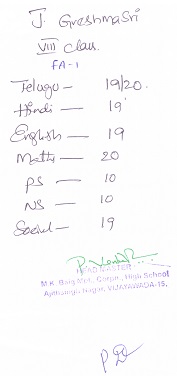 J. Greshma Sri
VIII Class.
FA-1
Telugu — 19/20.
Hindi — 19
English — 19
Maths — 20
PS — 10
NS — 10
Social — 19
HEAD MASTER
High School
Nagar, VIJAYAWADA-15.